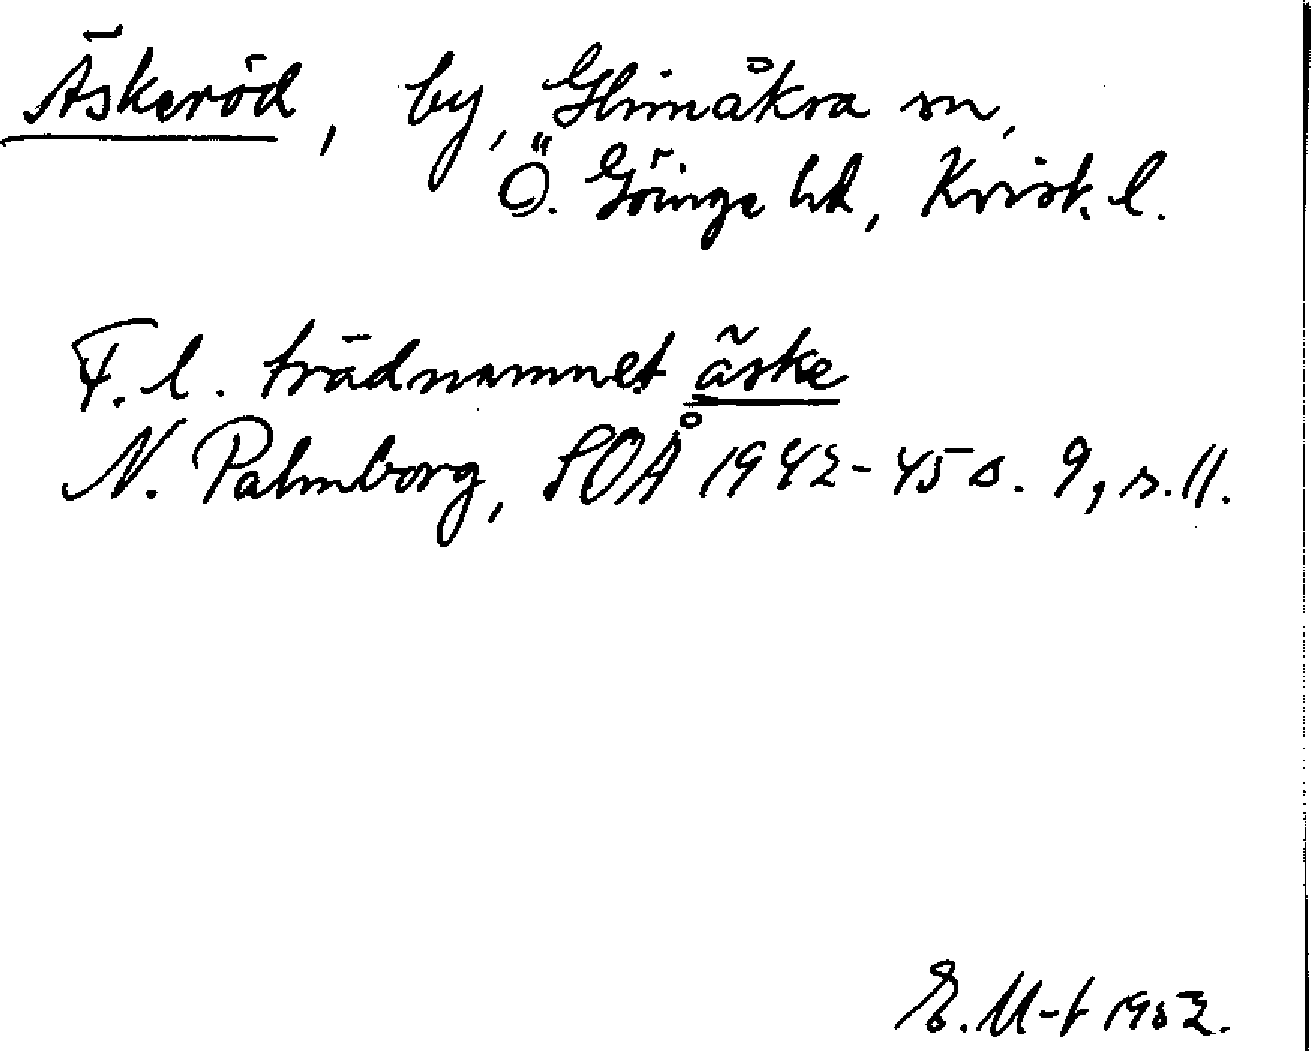 Äskeröd, by, Glimåkra sn,
Ö. Göinge hd, Krist. l.
F. l. trädnamnet äske
N. Palmborg, SOÅ 1942-45 s. 9, s. 11.
E. M-t 1952.